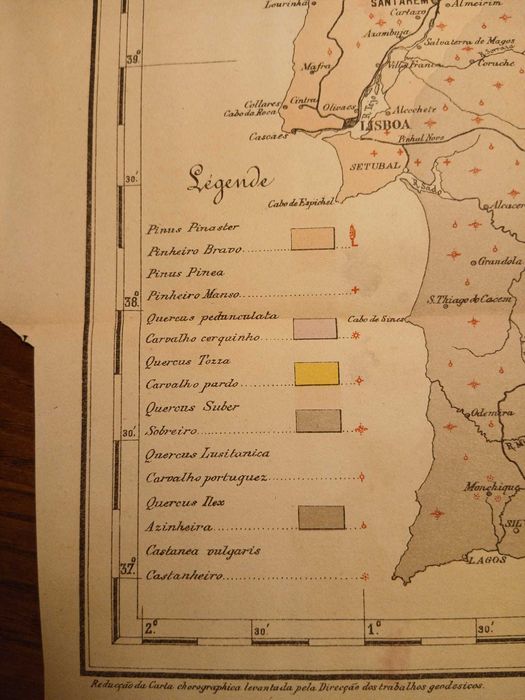 Lourinhã
SANTAREM
Almeirim
Cartaxo
Azambuja
Salvaterra de Magos
39°
Mafra
Villa Franca
Coruche
Collares
Cintra
Cabo da Roca
Olivaes
R. Tejo
Alcochete
LISBOA
Cascaes
Pinhal Novo
Légende
SETUBAL
30'
R. Sado
Cabo de Espichel
Alcacer
Pinus Pinaster
Pinheiro Bravo
Pinus Pinea
Grandola
Pinheiro Manso
S. Thiago do Cacem
38°
Quercus pedunculata
Cabo de Sines
Carvalho cerquinho
Quercus Tozza
Carvalho pardo
Quercus Suber
Odemira
30'
Sobreiro
Quercus Lusitanica
Carvalho portuguez
Monchique
Quercus Ilex
Azinheira
SIL
Castanea vulgaris
LAGOS
37°
Castanheiro
2° 30' 1° 30'
Reducção da Carta chorographica levantada pela Direcção dos trabalhos geodesicos.